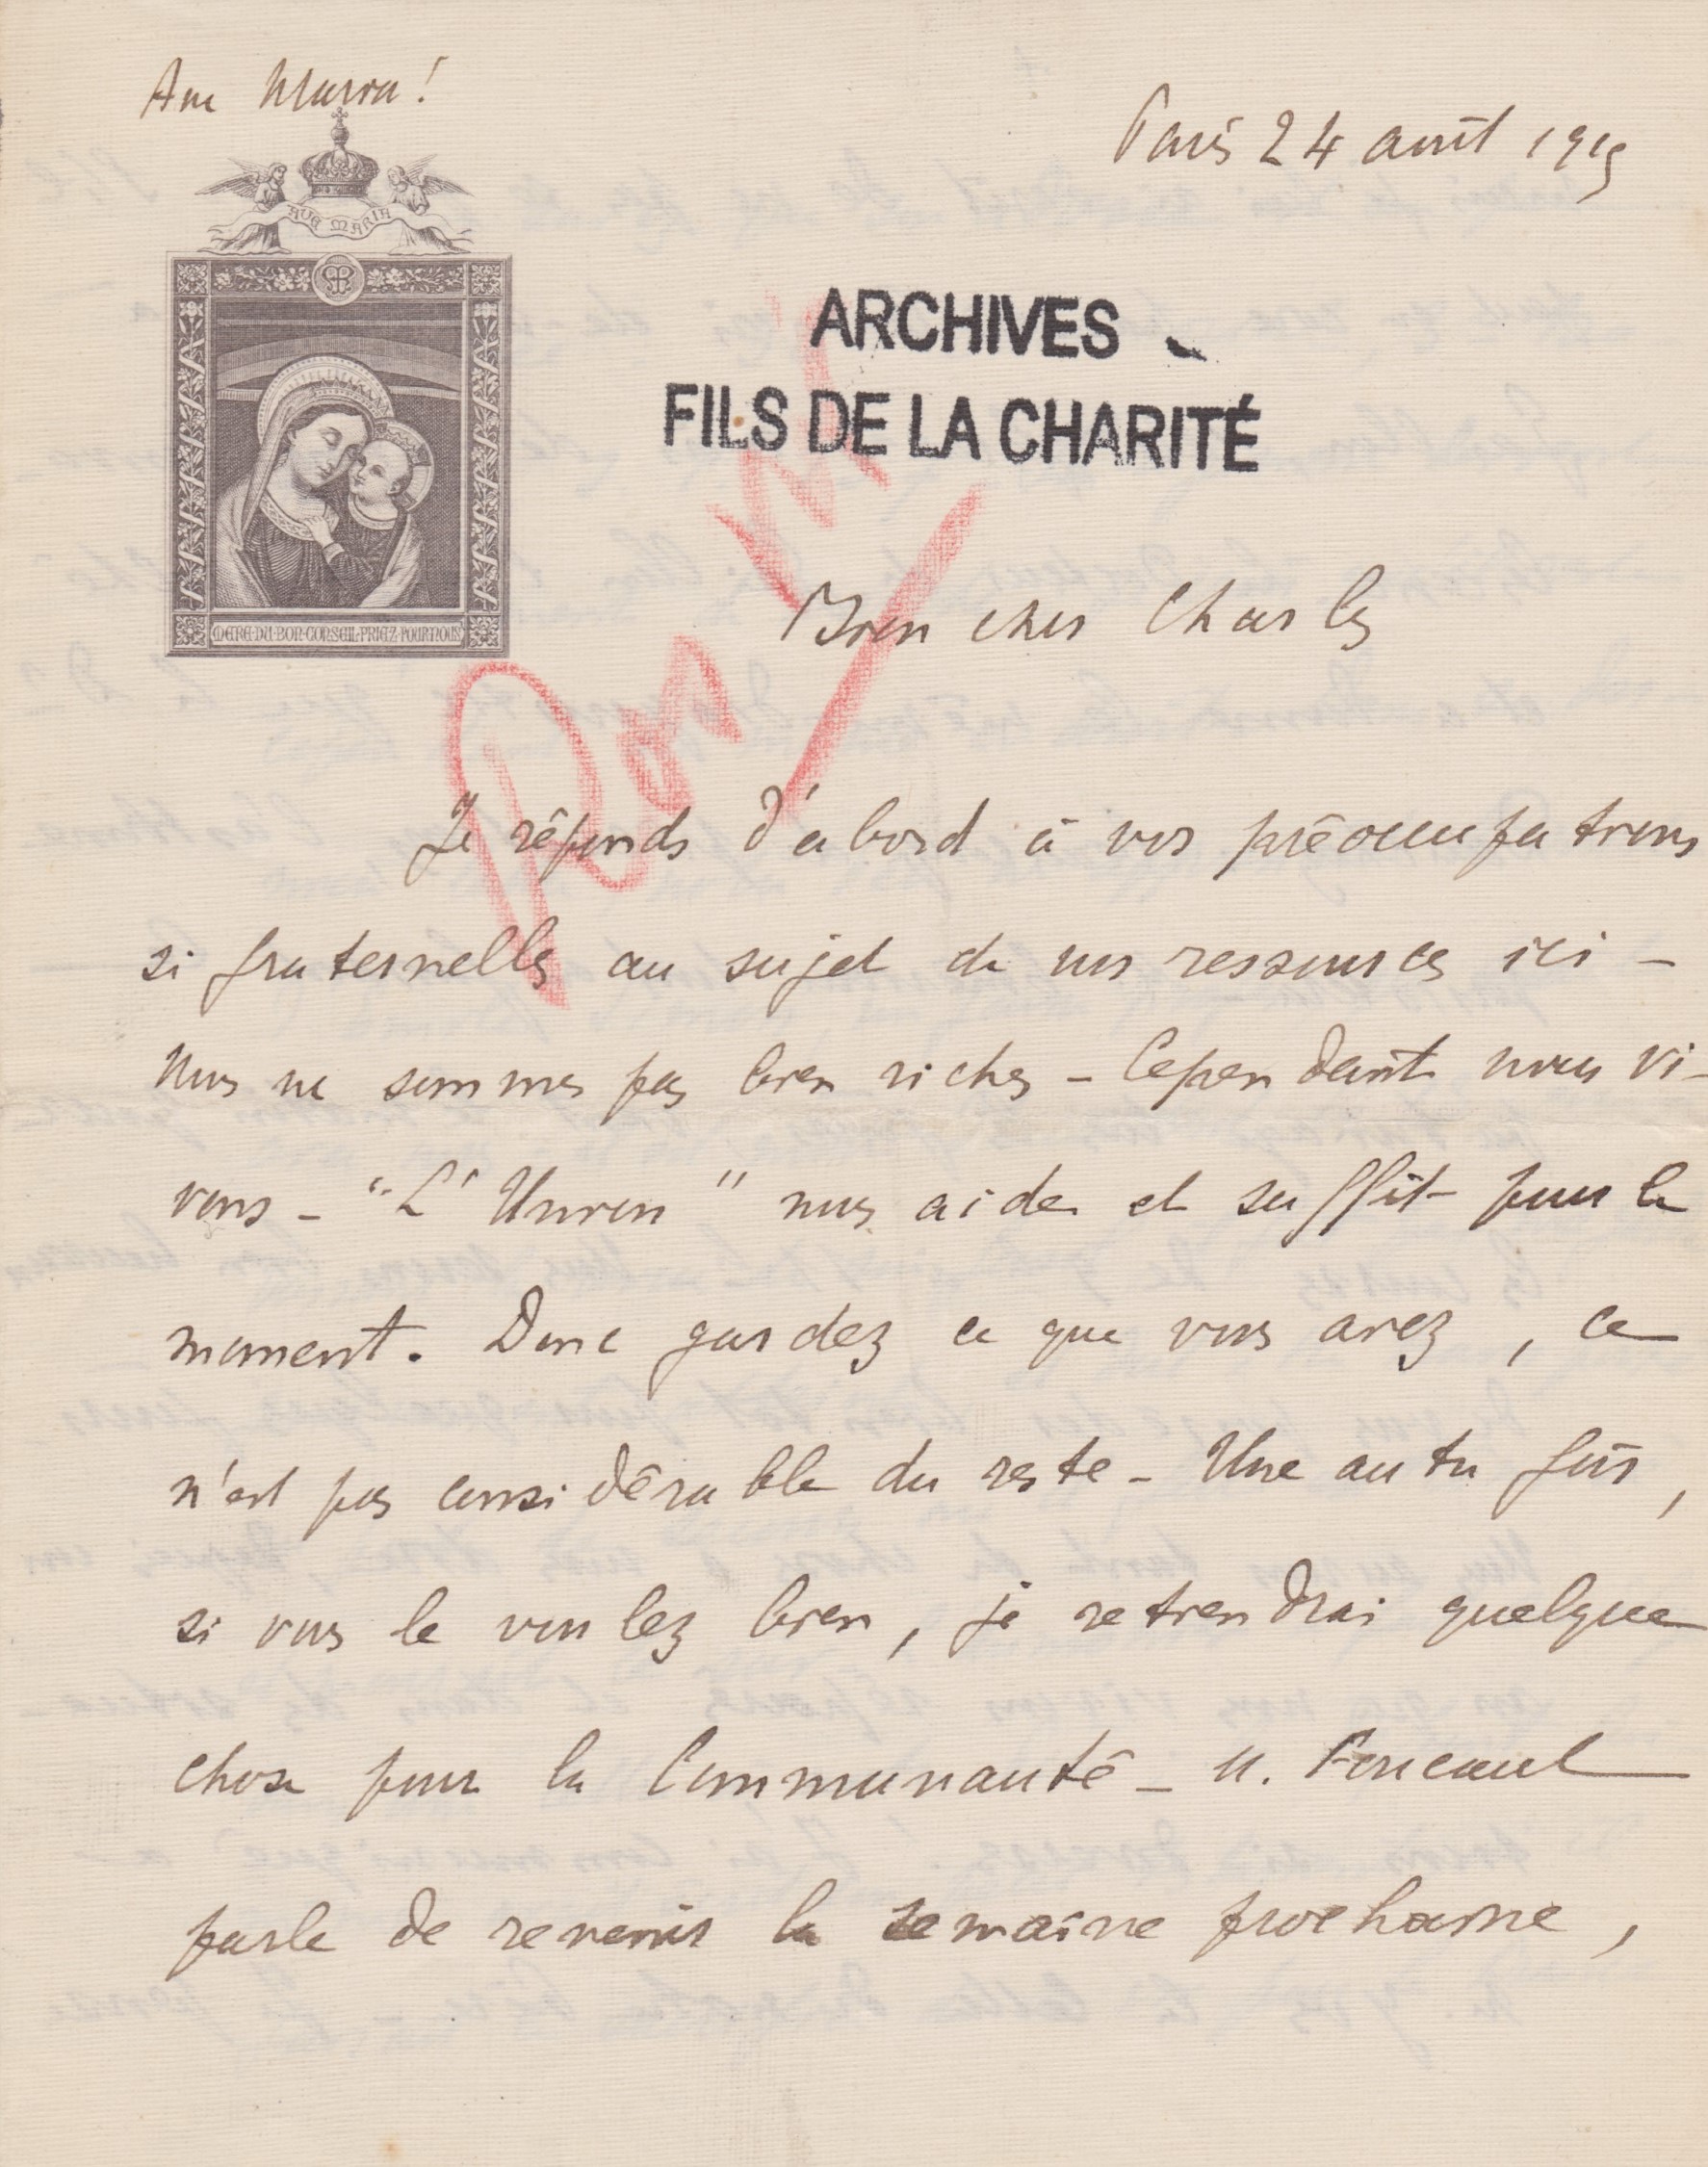 Ave Maria!
Paris 24 août 1915
AVE MARIA
MERE·DU·BON·CONSEIL·PRIEZ·POUR NOUS
ARCHIVES
FILS DE LA CHARITÉ
Bien cher Charles
Je réponds d'abord à vos préoccupations
si fraternelles au sujet de nos ressources ici –
Nous ne sommes pas bien riches – Cependant nous vi-
vons – "L'Union" nous aide et suffit pour le
moment. Donc gardez ce que vous avez, ce
n'est pas considérable du reste – Une autre fois,
si vous le voulez bien, je retiendrai quelque
chose pour la Communauté – M. Foucault
parle de revenir la semaine prochaine,